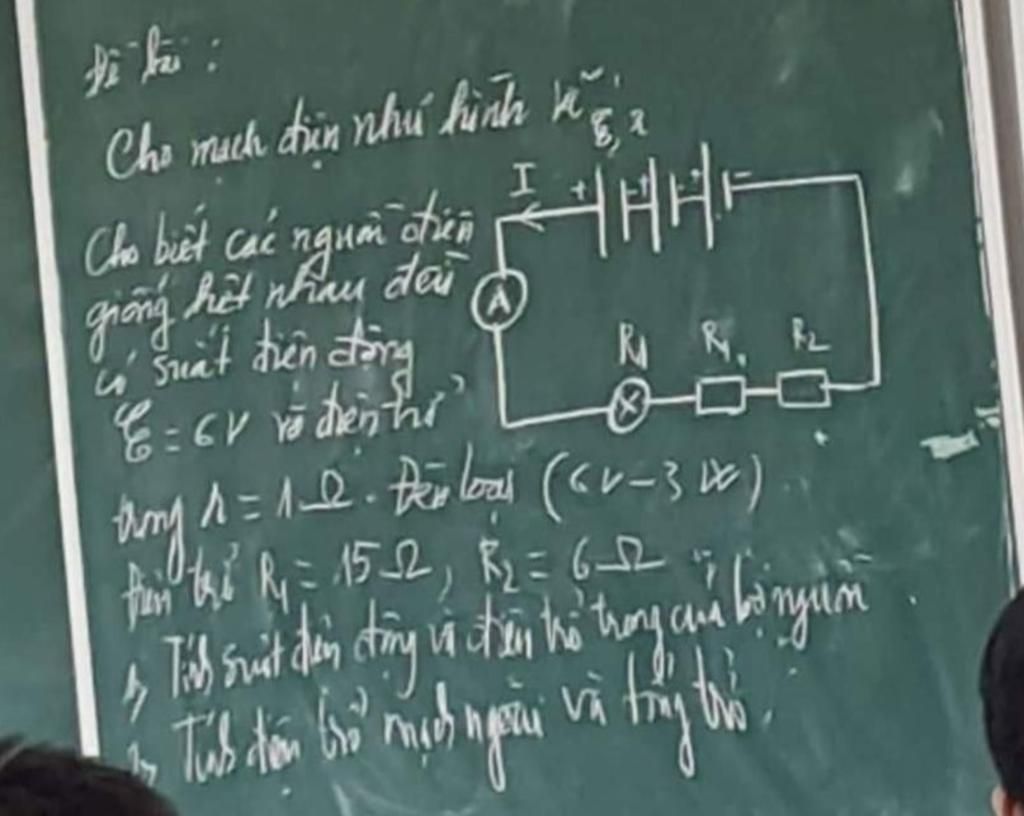 Đề bài :
Cho mạch điện như hình vẽ
Cho biết các nguồn điện
giống hệt nhau đều
có suất điện động
ℰ = 6V và điện trở
trong r = 1Ω. Đèn loại (6V-3W)
Điện trở R1 = 15Ω, R2 = 6Ω
1, Tính suất điện động và điện trở trong của bộ nguồn
2, Tính điện trở mạch ngoài và tổng trở.
ℰ, r
I + - + - + -
A
Rđ R1 R2